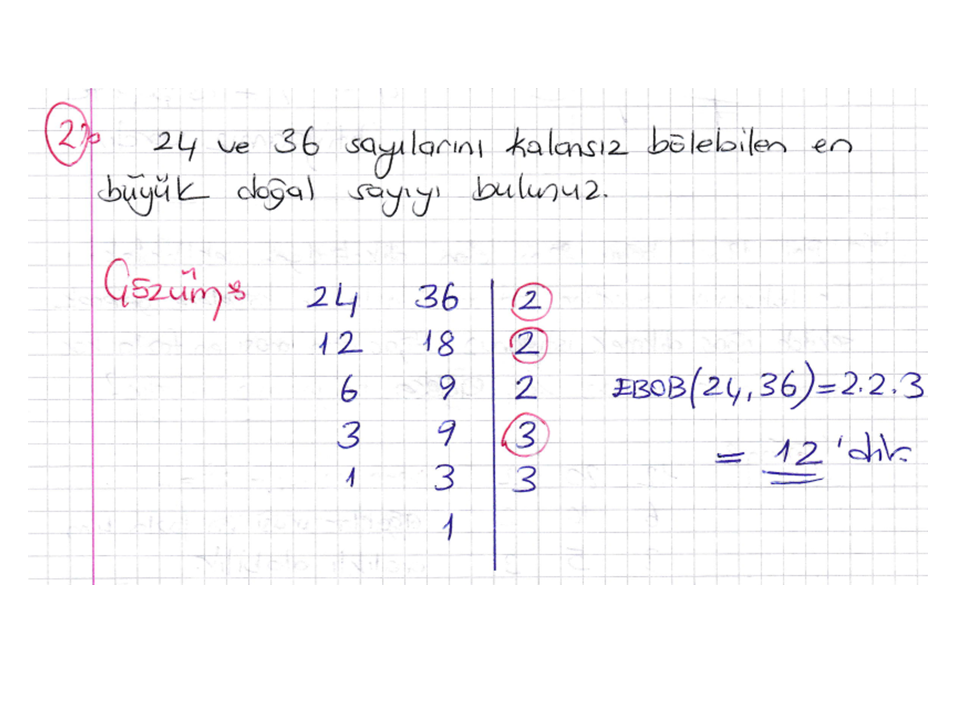 2) 24 ve 36 sayılarını kalansız bölebilen en
büyük doğal sayıyı bulunuz.
Çözüm:
24 36 | 2
12 18 | 2
6 9 | 2
3 9 | 3
1 3 | 3
1
EBOB(24,36)=2.2.3
= 12'dir.